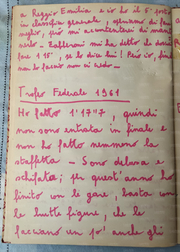 a Reggio Emilia e io ho il 5° posto
in classifica generale, speriamo di far
meglio, però mi accontenterei di
mi ha detto che dovrei
fare 1'15", se lo dice lui! Però io, finché
non lo faccio non ci credo -
Trofeo Federale 1961
Ho fatto 1'17"7, quindi
non sono entrata in finale e
non ho fatto nemmeno la
staffetta - Sono delusa e
schifata; per quest'anno ho
finito con le gare, basta con
le brutte figure, che le
facciano un po' anche gli